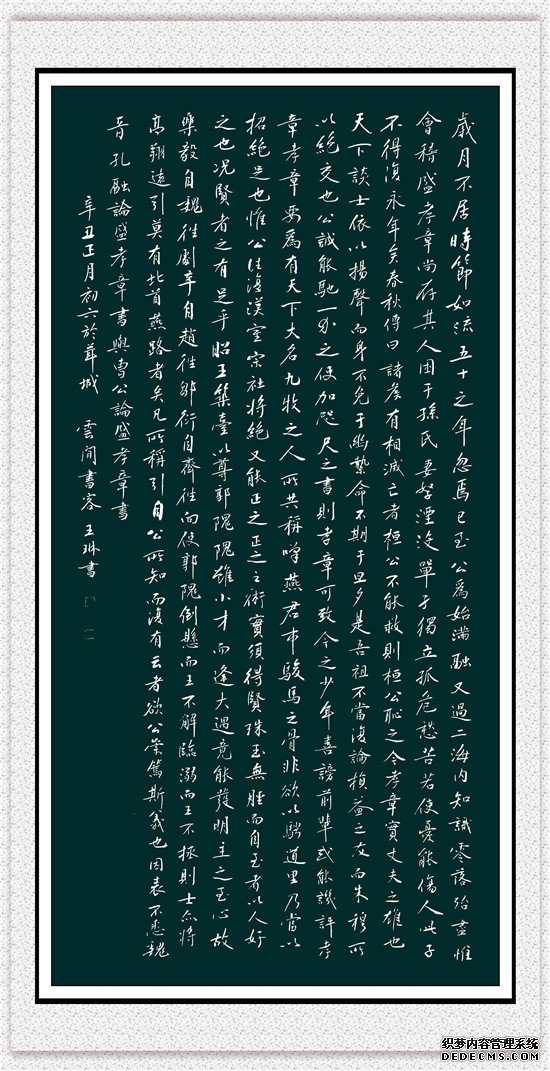 歲月不居時節如流五十之年忽焉已至公為始滿融又過二海內知識零落殆盡惟
會稽盛孝章尚存其人困于孫氏妻孥湮沒單孑獨立孤危愁苦若使憂能傷人此子
不得復永年矣春秋傳曰諸侯有相滅亡者桓公不能救則桓公恥之今孝章實丈夫之雄也
天下談士依以揚聲而身不免于幽縶命不期于旦夕是吾祖不當復論損益之友而朱穆所
以絕交也公誠能馳一介之使加咫尺之書則孝章可致今之少年喜謗前輩或能譏評孝
章孝章要為有天下大名九牧之人所共稱嘆燕君市駿馬之骨非欲以騁道里乃當以
招絕足也惟公匡復漢室宗社將絕又能正之正之之術實須得賢珠玉無脛而自至者以人好
之也況賢者之有足乎昭王築臺以尊郭隗隗雖小才而逢大遇竟能發明主之至心故
樂毅自魏往劇辛自趙往鄒衍自齊往向使郭隗倒懸而王不解臨溺而王不拯則士亦將
高翔遠引莫有北首燕路者矣凡所稱引自公所知而復有云者欲公崇篤斯義也因表不悉魏
晉孔融論盛孝章書與曹公論盛孝章書
辛丑正月初六於茸城 雲間書客王琳書
织梦内容管理系统
DEDECMS.COM